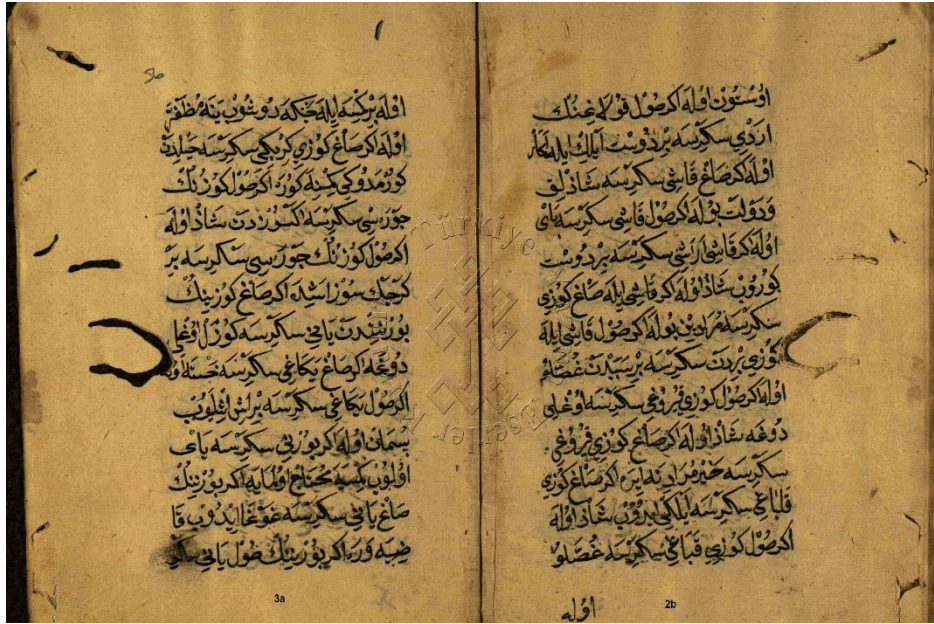 اوستون اوله اكر صول قولاغنك
اردي سكرسه بر دوست ايلك ايله
اوله اكر صاغ قاشي سكرسه شاذلق
و دولت بوله اكر صول قاشي سكرسه باي
اوله اكر قاشي اراسي سكرسه بر دوست
كوروب شاذ اوله اكر قاشي ايله صاغ كوزي
سكرسه مرادين بوله اكر صول قاشي ايله
كوزي بردن سكرسه بر سببدن غصهلو
اوله اكر صول كوزي قويروغي سكرسه اوغلي
دوغه شاذ اوله اكر صاغ كوزي قويروغي
سكرسه خير مرادنه ايره اكر صاغ كوزي
قباغي سكرسه ايدوب شاذ اوله
اكر صول كوزي قباغي سكرسه غصهلو
اوله
2b
اوله بر كسه ايله جنكه دوغوب ينه مظفر
اوله اكر صاغ كوزي كربكي سكرسه
كورمدوكي كسنه كوره اكر صول كوزنك
جوره سي سكرسه سوزدن شاذ اوله
اكر صول كوزنك جوره سي سكرسه بر
كرجك سوز اشده اكر صاغ كوزينك
يانى سكرسه كوزل اوغلي
دوغه اكر صاغ يكاغي سكرسه خسته اوله
اكر صول يكاغي سكرسه بر ايش اشلوب
پشمان اوله اكر بورني سكرسه باي
اولوب كسيه محتاج اولمايه اكر بورنينك
صاغ ياني سكرسه غوغا ايدوب قا
ضيه وره اكر بورنينك صول ياني سكر
3a
Türkiye
Eserler